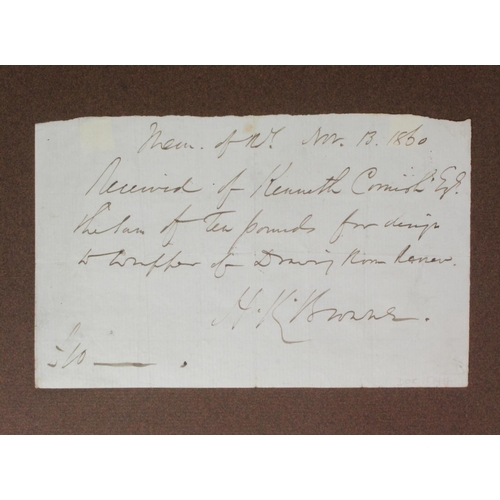 Mem. of Rt. Nov. 13. 1860
Received of Kenneth Cornish Esqr.
the sum of Ten pounds for design
to wrapper of Drawing Room Review.
H. K. Browne.
£10 —— .